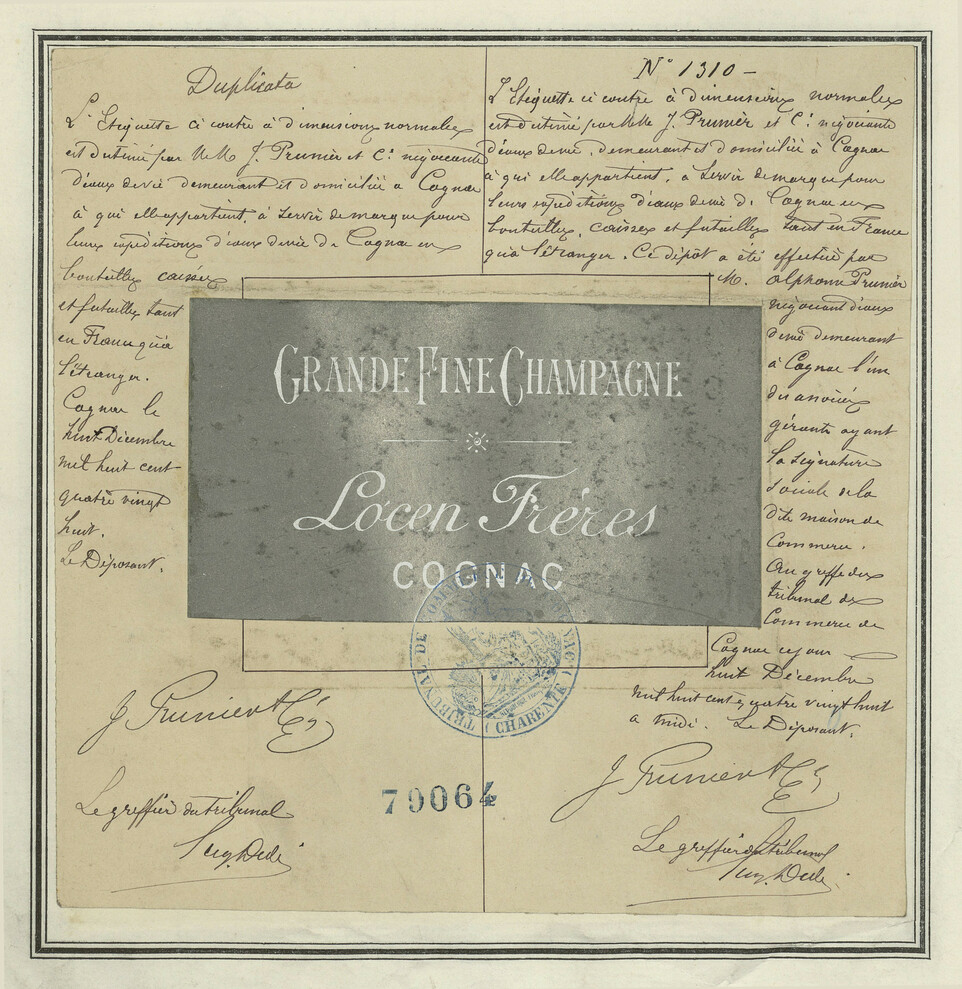 Duplicata
L'Etiquette ci contre à dimensions normales
est destinée par MM J. Prunier et Cie négociants
d'eaux de vie demeurant et domiciliés a Cognac
à qui elle appartient, à servir de marque pour
leurs expéditions d'eaux de vie de Cognac en
bouteilles caisses
et futailles tant
en France qu'à
l'étranger.
Cognac le
huit Décembre
mil huit cent
quatre vingt
huit.
Le Déposant.
J Prunier & Cie
Le greffier du tribunal
N° 1310 -
L'Etiquette ci contre à dimensions normales
est destinée par MM J. Prunier et Cie négociants
d'eaux de vie, demeurant et domiciliés à Cognac
à qui elle appartient, à servir de marque pour
leurs expéditions d'eaux de vie de Cognac en
bouteilles, caisses et futailles tant en France
qu'à l'étranger. Ce dépôt a été effectué par
M. Alphonse Prunier
négociant d'eaux
de vie demeurant
à Cognac l'un
des associés
gérants ayant
la signature
sociale de la
dite maison de
Commerce.
Au greffe du
tribunal de
Commerce de
Cognac ce jour
huit Décembre
mil huit cent quatre vingt huit
a midi. Le Déposant.
J Prunier & Cie
Le greffier du tribunal
GRANDE FINE CHAMPAGNE
Locen Fréres
COGNAC
TRIBUNAL DE COMMERCE DE COGNAC (CHARENTE)
79064